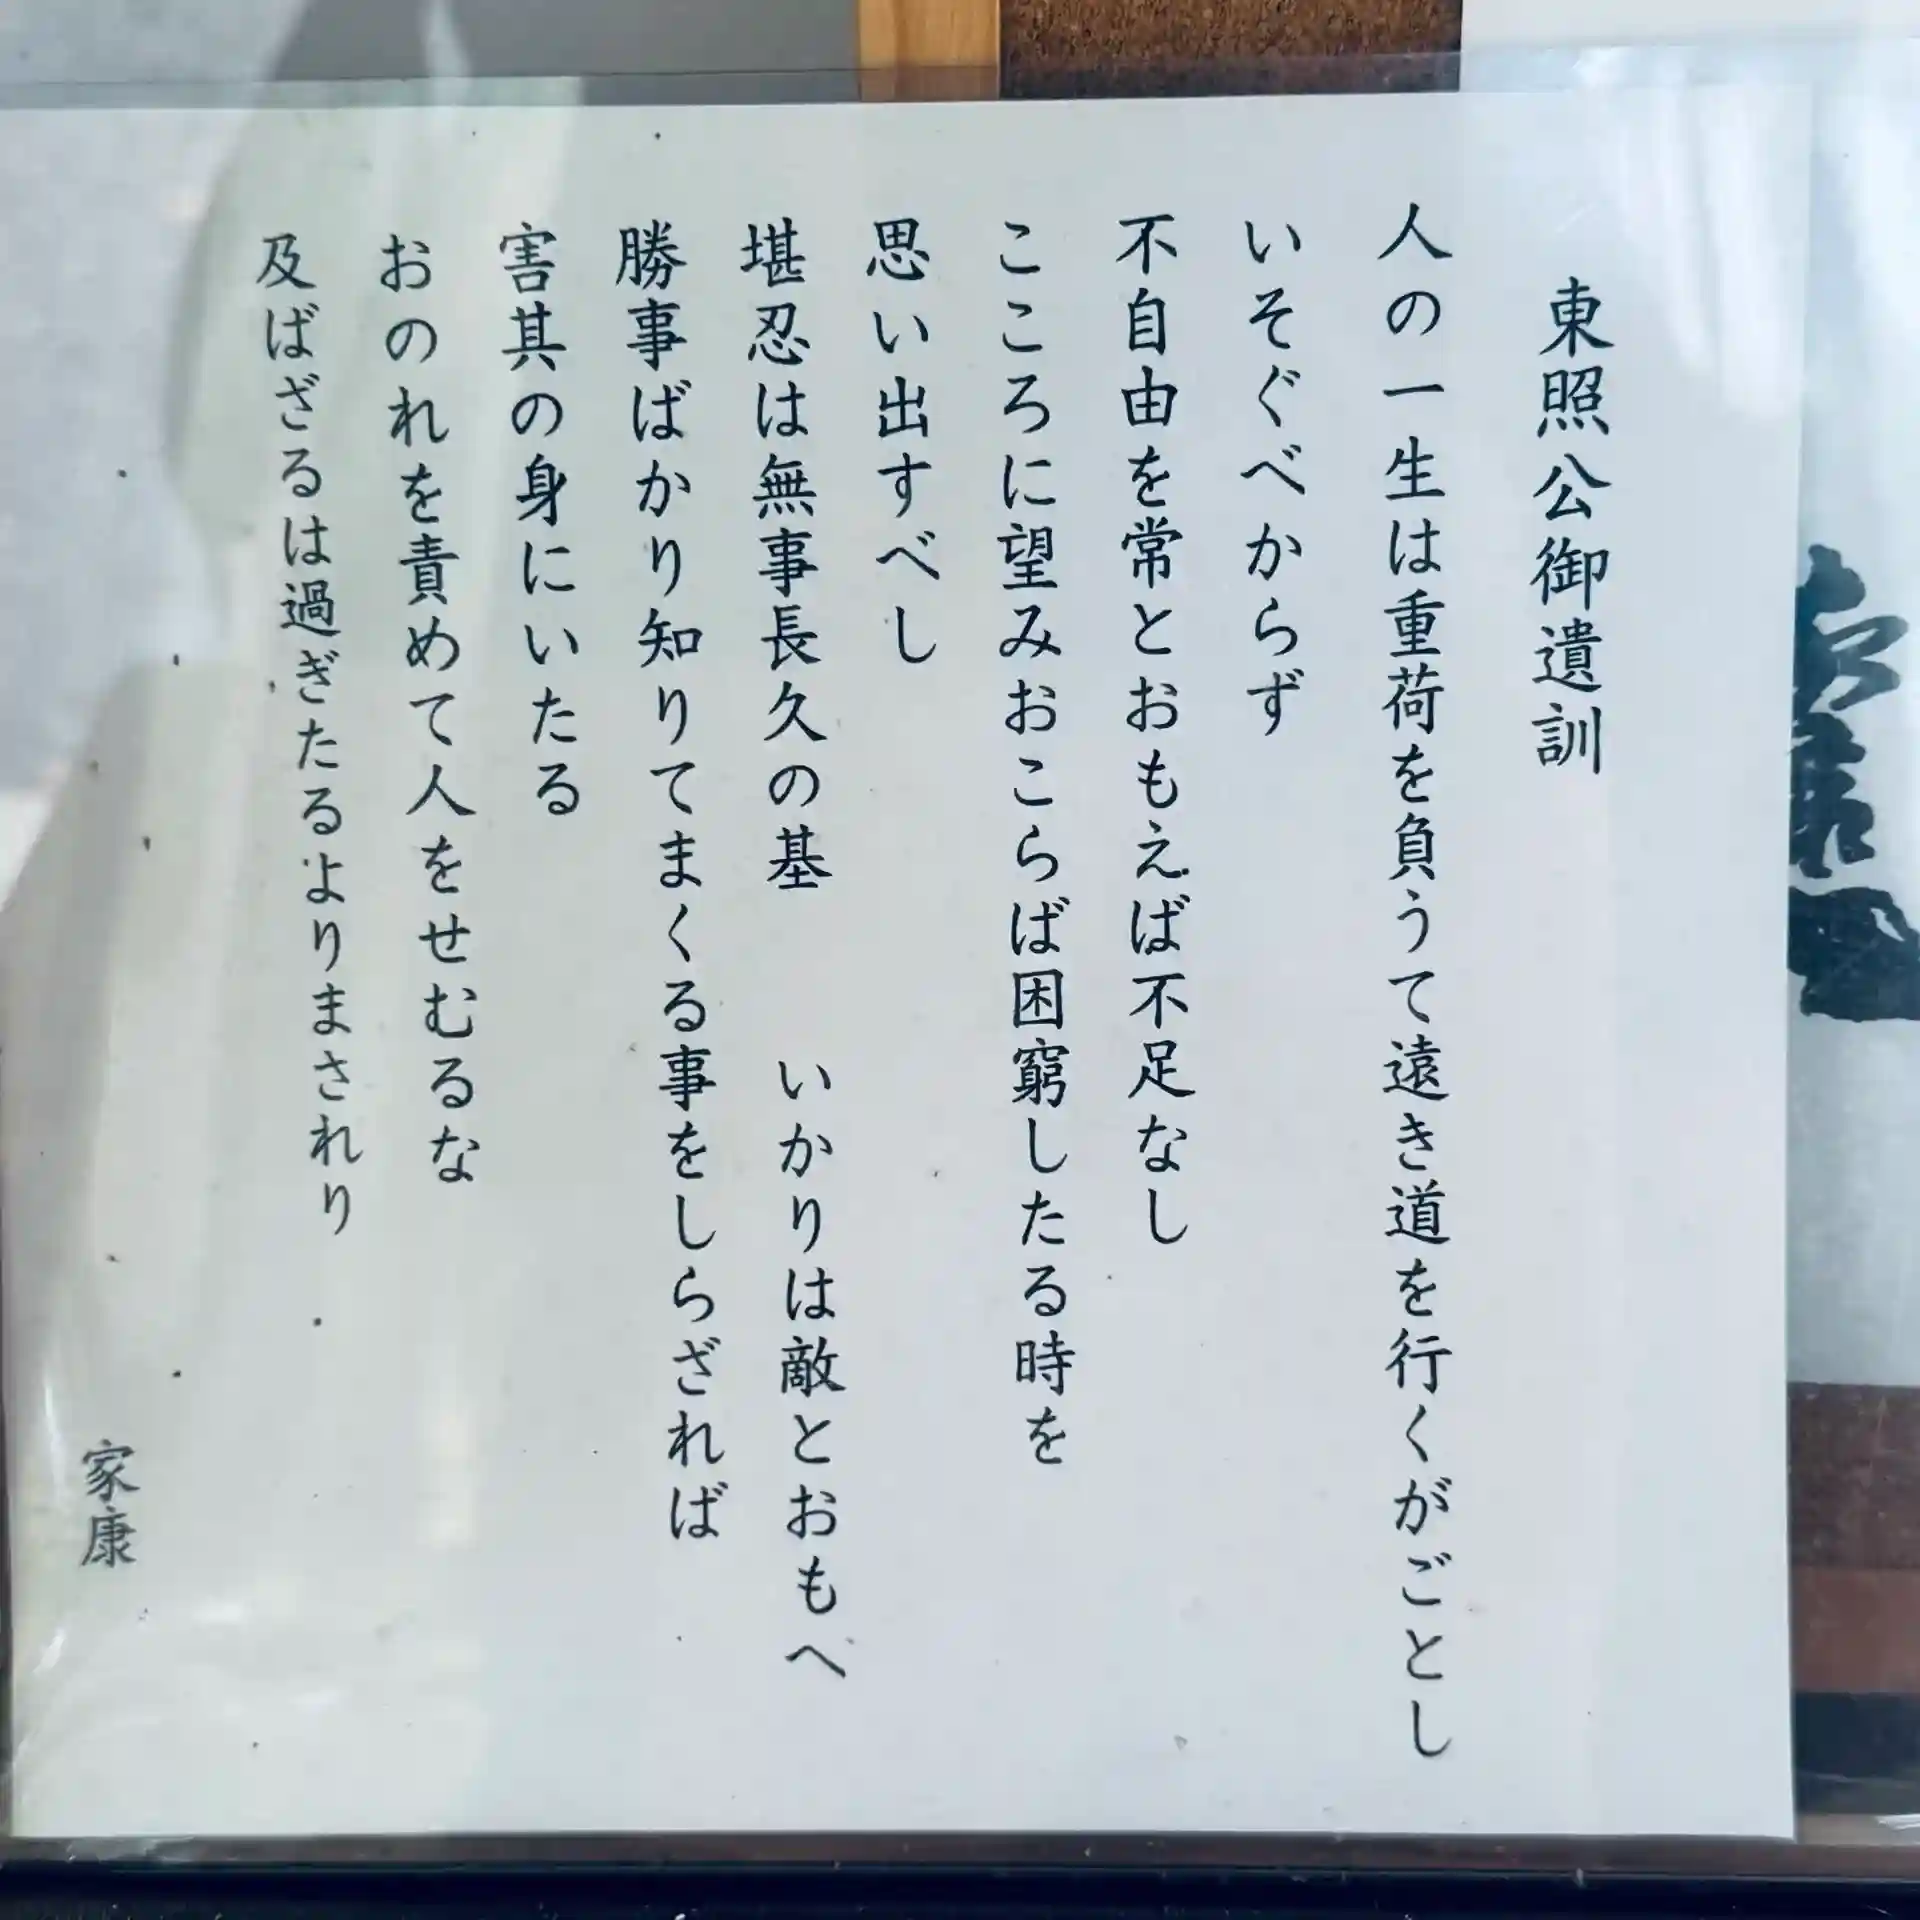 東照公御遺訓
人の一生は重荷を負うて遠き道を行くがごとし
いそぐべからず
不自由を常とおもえば不足なし
こころに望みおこらば困窮したる時を
思い出すべし
堪忍は無事長久の基　いかりは敵とおもへ
勝事ばかり知りてまくる事をしらざれば
害其の身にいたる
おのれを責めて人をせむるな
及ばざるは過ぎたるよりまされり
家康